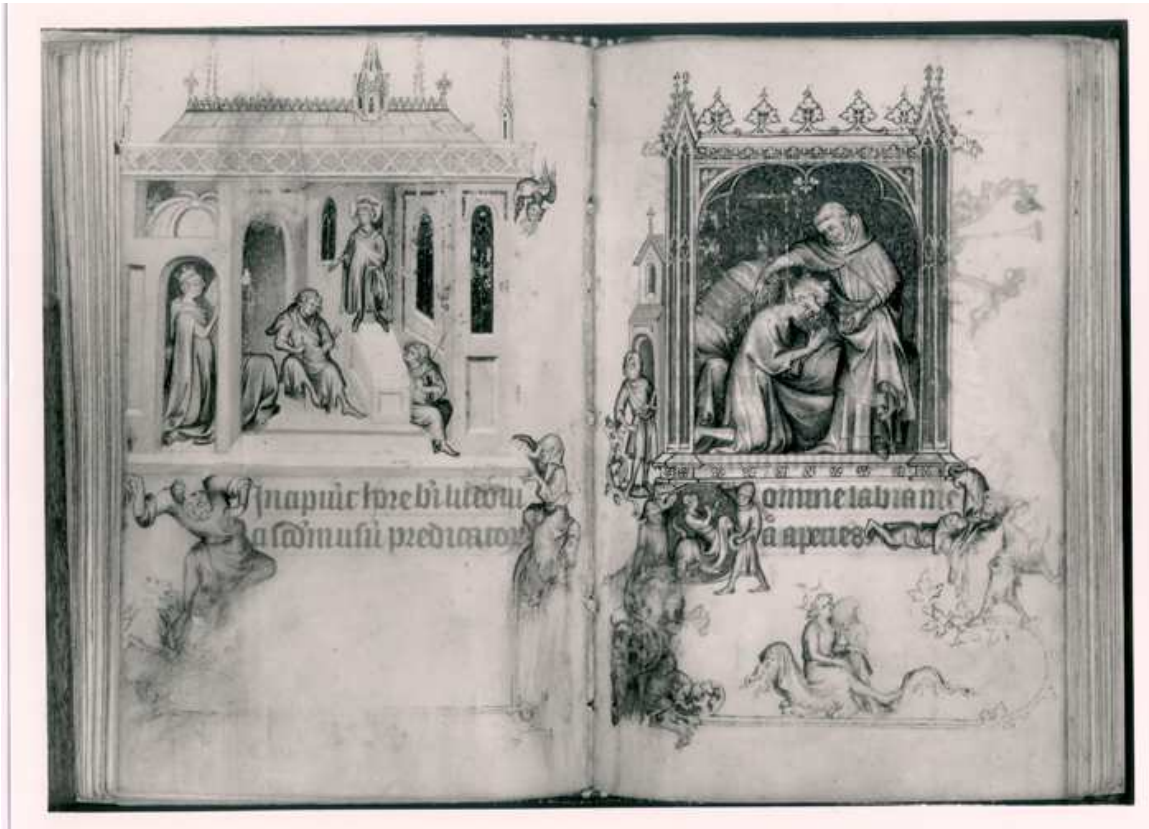 Incipiūt hore bī ludoui
ci scdm usū predicator
omine labia me
a aperies